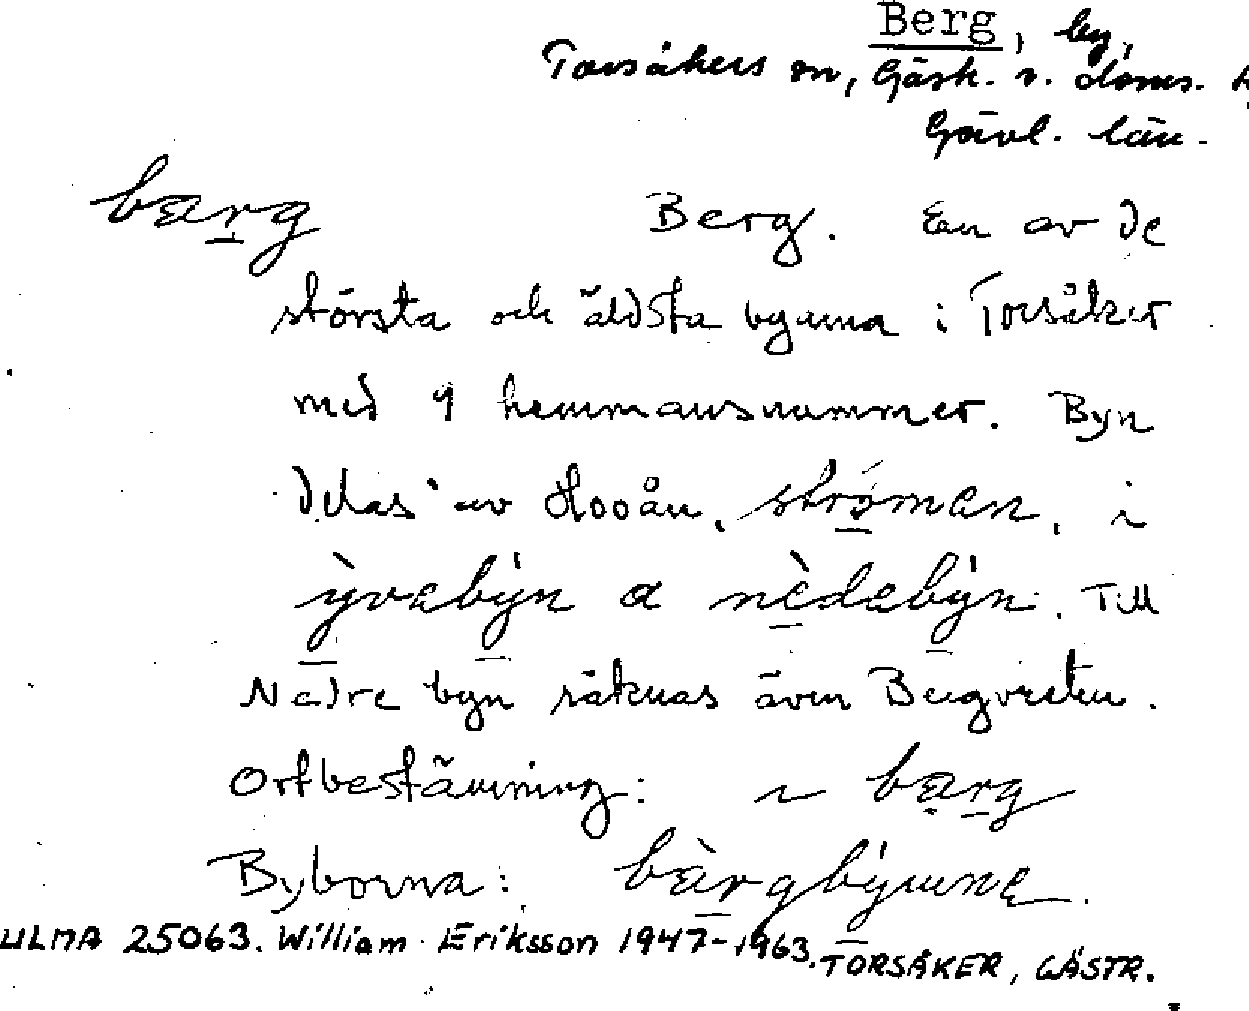 Berg, by,
Torsåkers sn, Gästr. v. doms.
Gävl. län.
bærg Berg. En av de
största och äldsta byarna i Torsåker
med 9 hemmansnummer. Byn
delas av Hooån, strömen, i
ỳvebýn a nèdebýn. Till
Nedre byn räknas även Bergvreten.
Ortbestämning: i bærg
Byborna:
ULMA 25063. William Eriksson 1947-1963. TORSÅKER, GÄSTR.